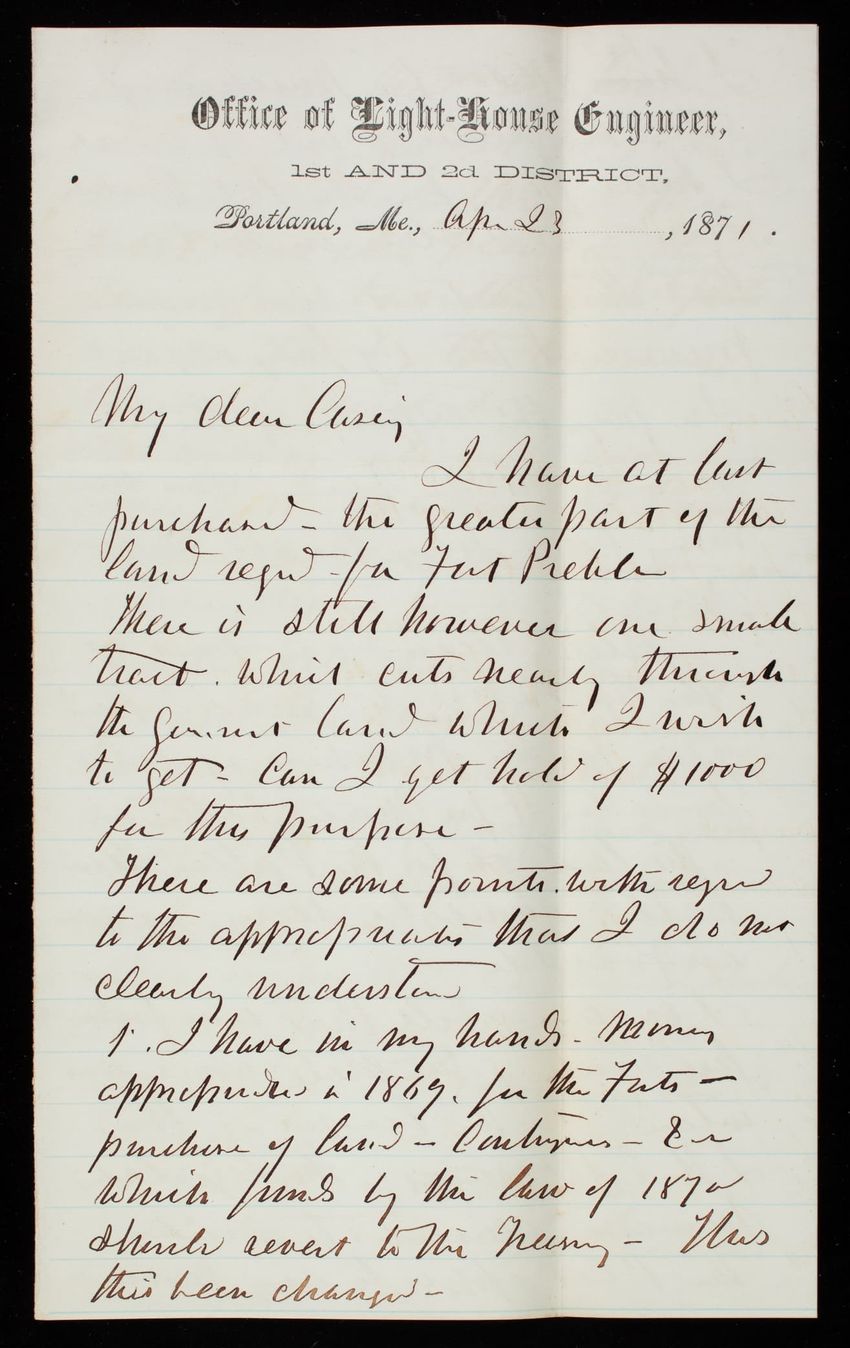 Office of Light-House Engineer,
1st AND 2d DISTRICT,
Portland, Me., Ap. 23, 1871.
My dear Casey
I have at last
purchased - the greater part of the
land reqd - for Fort Preble
There is still however one small
tract. which cuts nearly through
the Goverment land which I wish
to get - Can I get hold of $1000
for this purpose -
There are some points. with regard
to the appropriations that I do not
clearly understand
1. I have in my hands - Money
appropriated in 1869. for the Forts -
purchase of land - Contingencies - &c
which funds by the law of 1870
should revert to the Treasury - Has
this been changed -